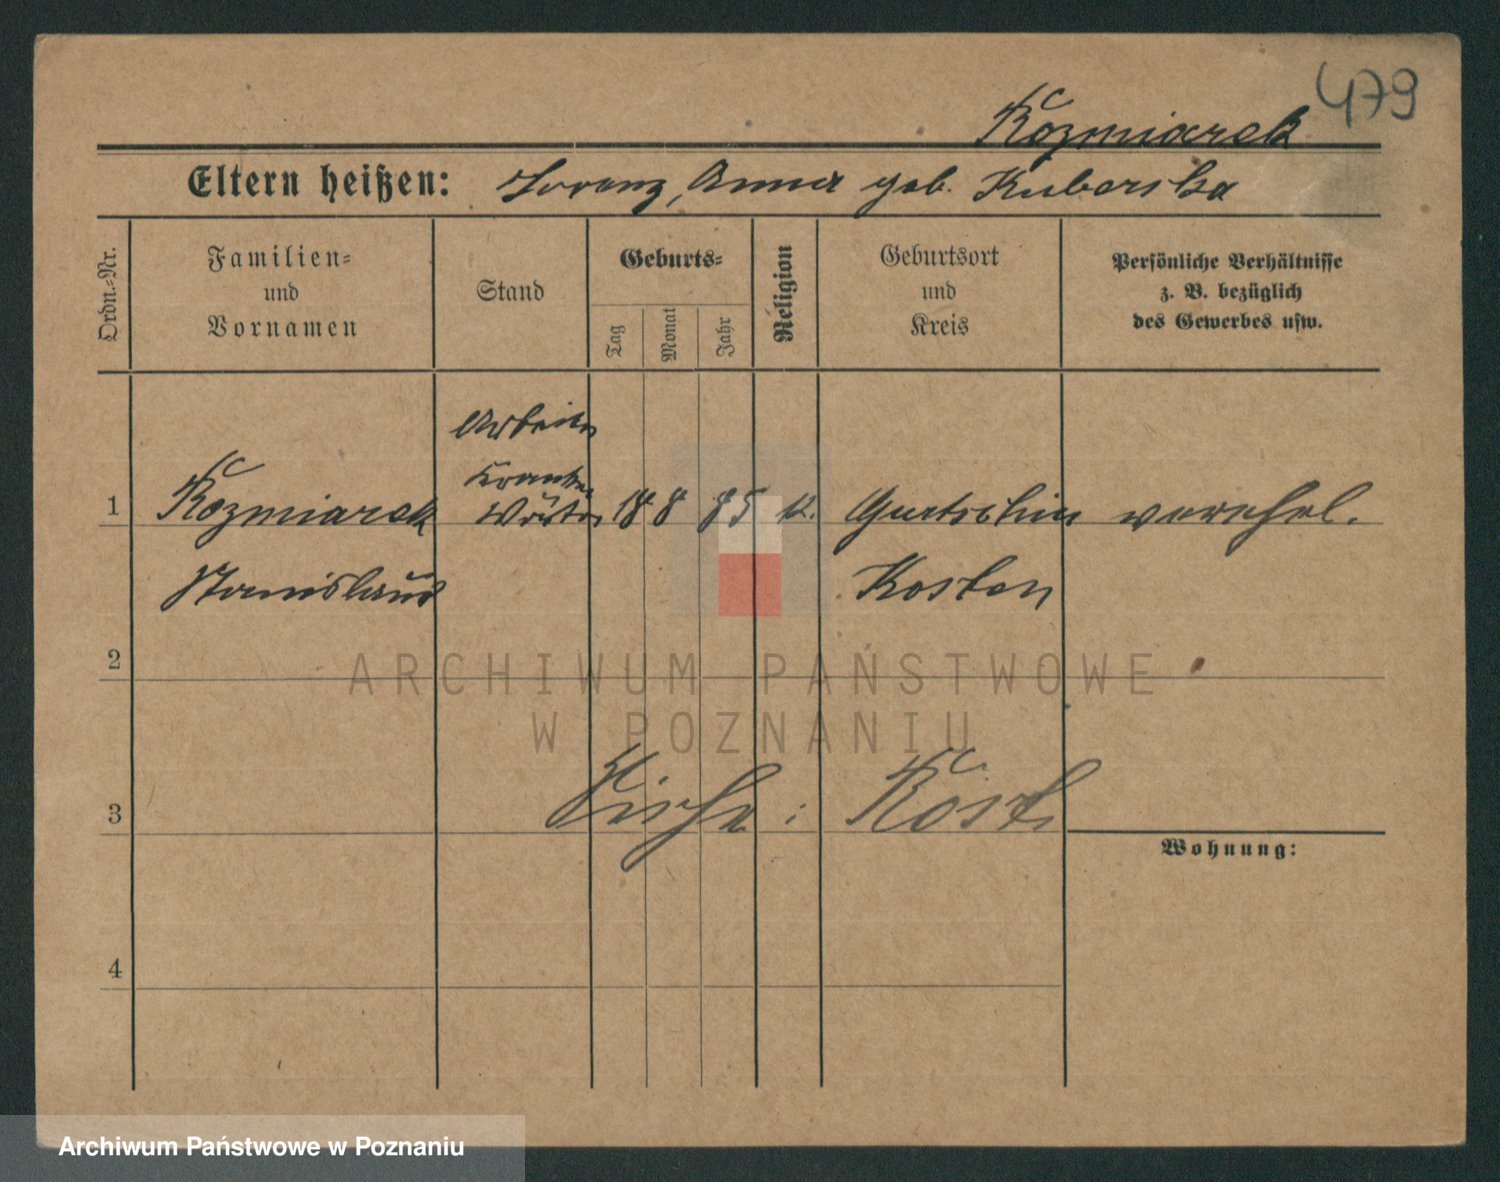 479
Kozmiarek
Eltern heißen: Lorenz, Anna geb. Kuberska
Ordn.-Nr.
Familien-
und
Vornamen
Stand
Geburts-
Tag
Monat
Jahr
Religion
Geburtsort
und
Kreis
Persönliche Verhältnisse
z. B. bezüglich
des Gewerbes usw.
Arbeiter
Kranken
Wärter
1 Kozmiarek 18 8 85 k. Gurtschin verehel.
Stanislaus Kosten
2
ARCHIWUM PAŃSTWOWE
W POZNANIU
3 Siehe:
Wohnung:
4
Archiwum Państwowe w Poznaniu